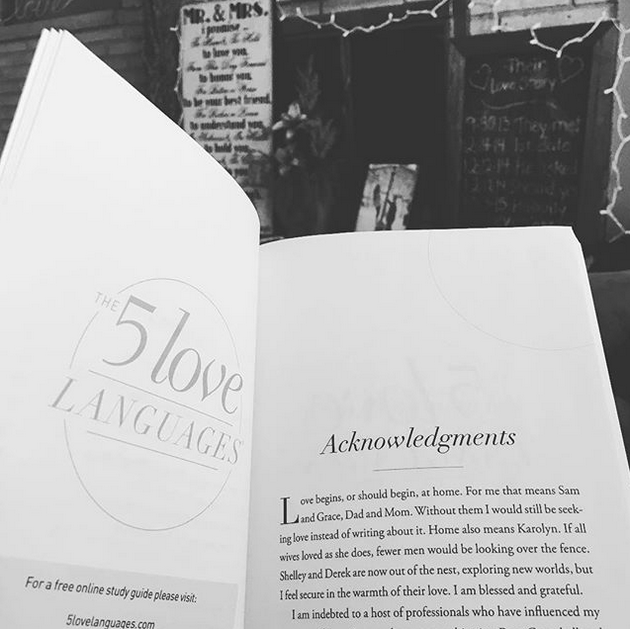 MR. & MRS.
I promise
To Have & To Hold
to love you,
From This Day Forward
to honor you,
to be your best friend,
to understand you,
to hold you,
Their
Love Story
They met
1st Date
THE
5 love
LANGUAGES
For a free online study guide please visit:
5lovelanguages.com
Acknowledgments
Love begins, or should begin, at home. For me that means Sam
and Grace, Dad and Mom. Without them I would still be seek-
ing love instead of writing about it. Home also means Karolyn. If all
wives loved as she does, fewer men would be looking over the fence.
Shelley and Derek are now out of the nest, exploring new worlds, but
I feel secure in the warmth of their love. I am blessed and grateful.
I am indebted to a host of professionals who have influenced my